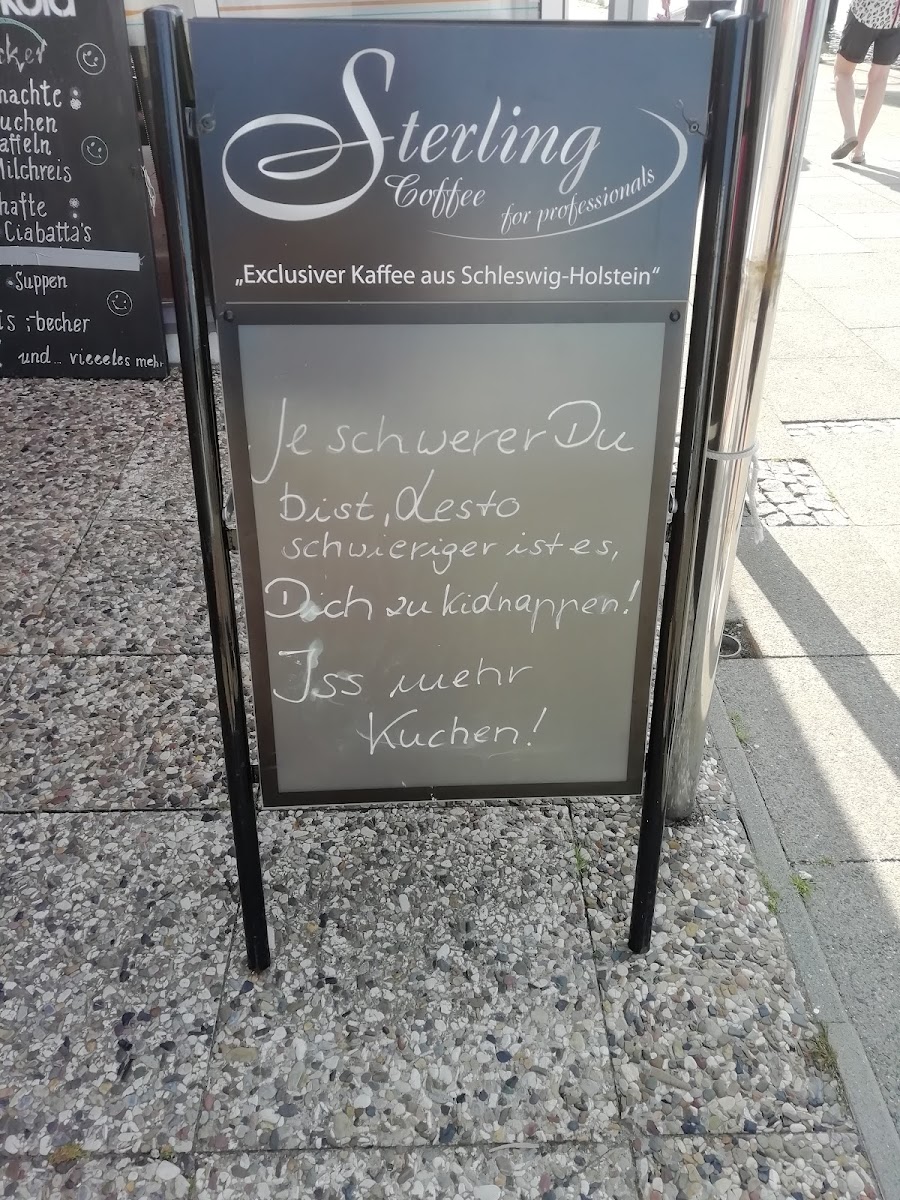 cker
machte
uchen
affeln
Milchreis
hafte
Ciabatta's
•Suppen
is,-becher
und... vieeeles mehr
Sterling
Coffee
for professionals
„Exclusiver Kaffee aus Schleswig-Holstein“
Je schwerer Du
bist, desto
schwieriger ist es,
Dich zu kidnappen!
Iss mehr
Kuchen!